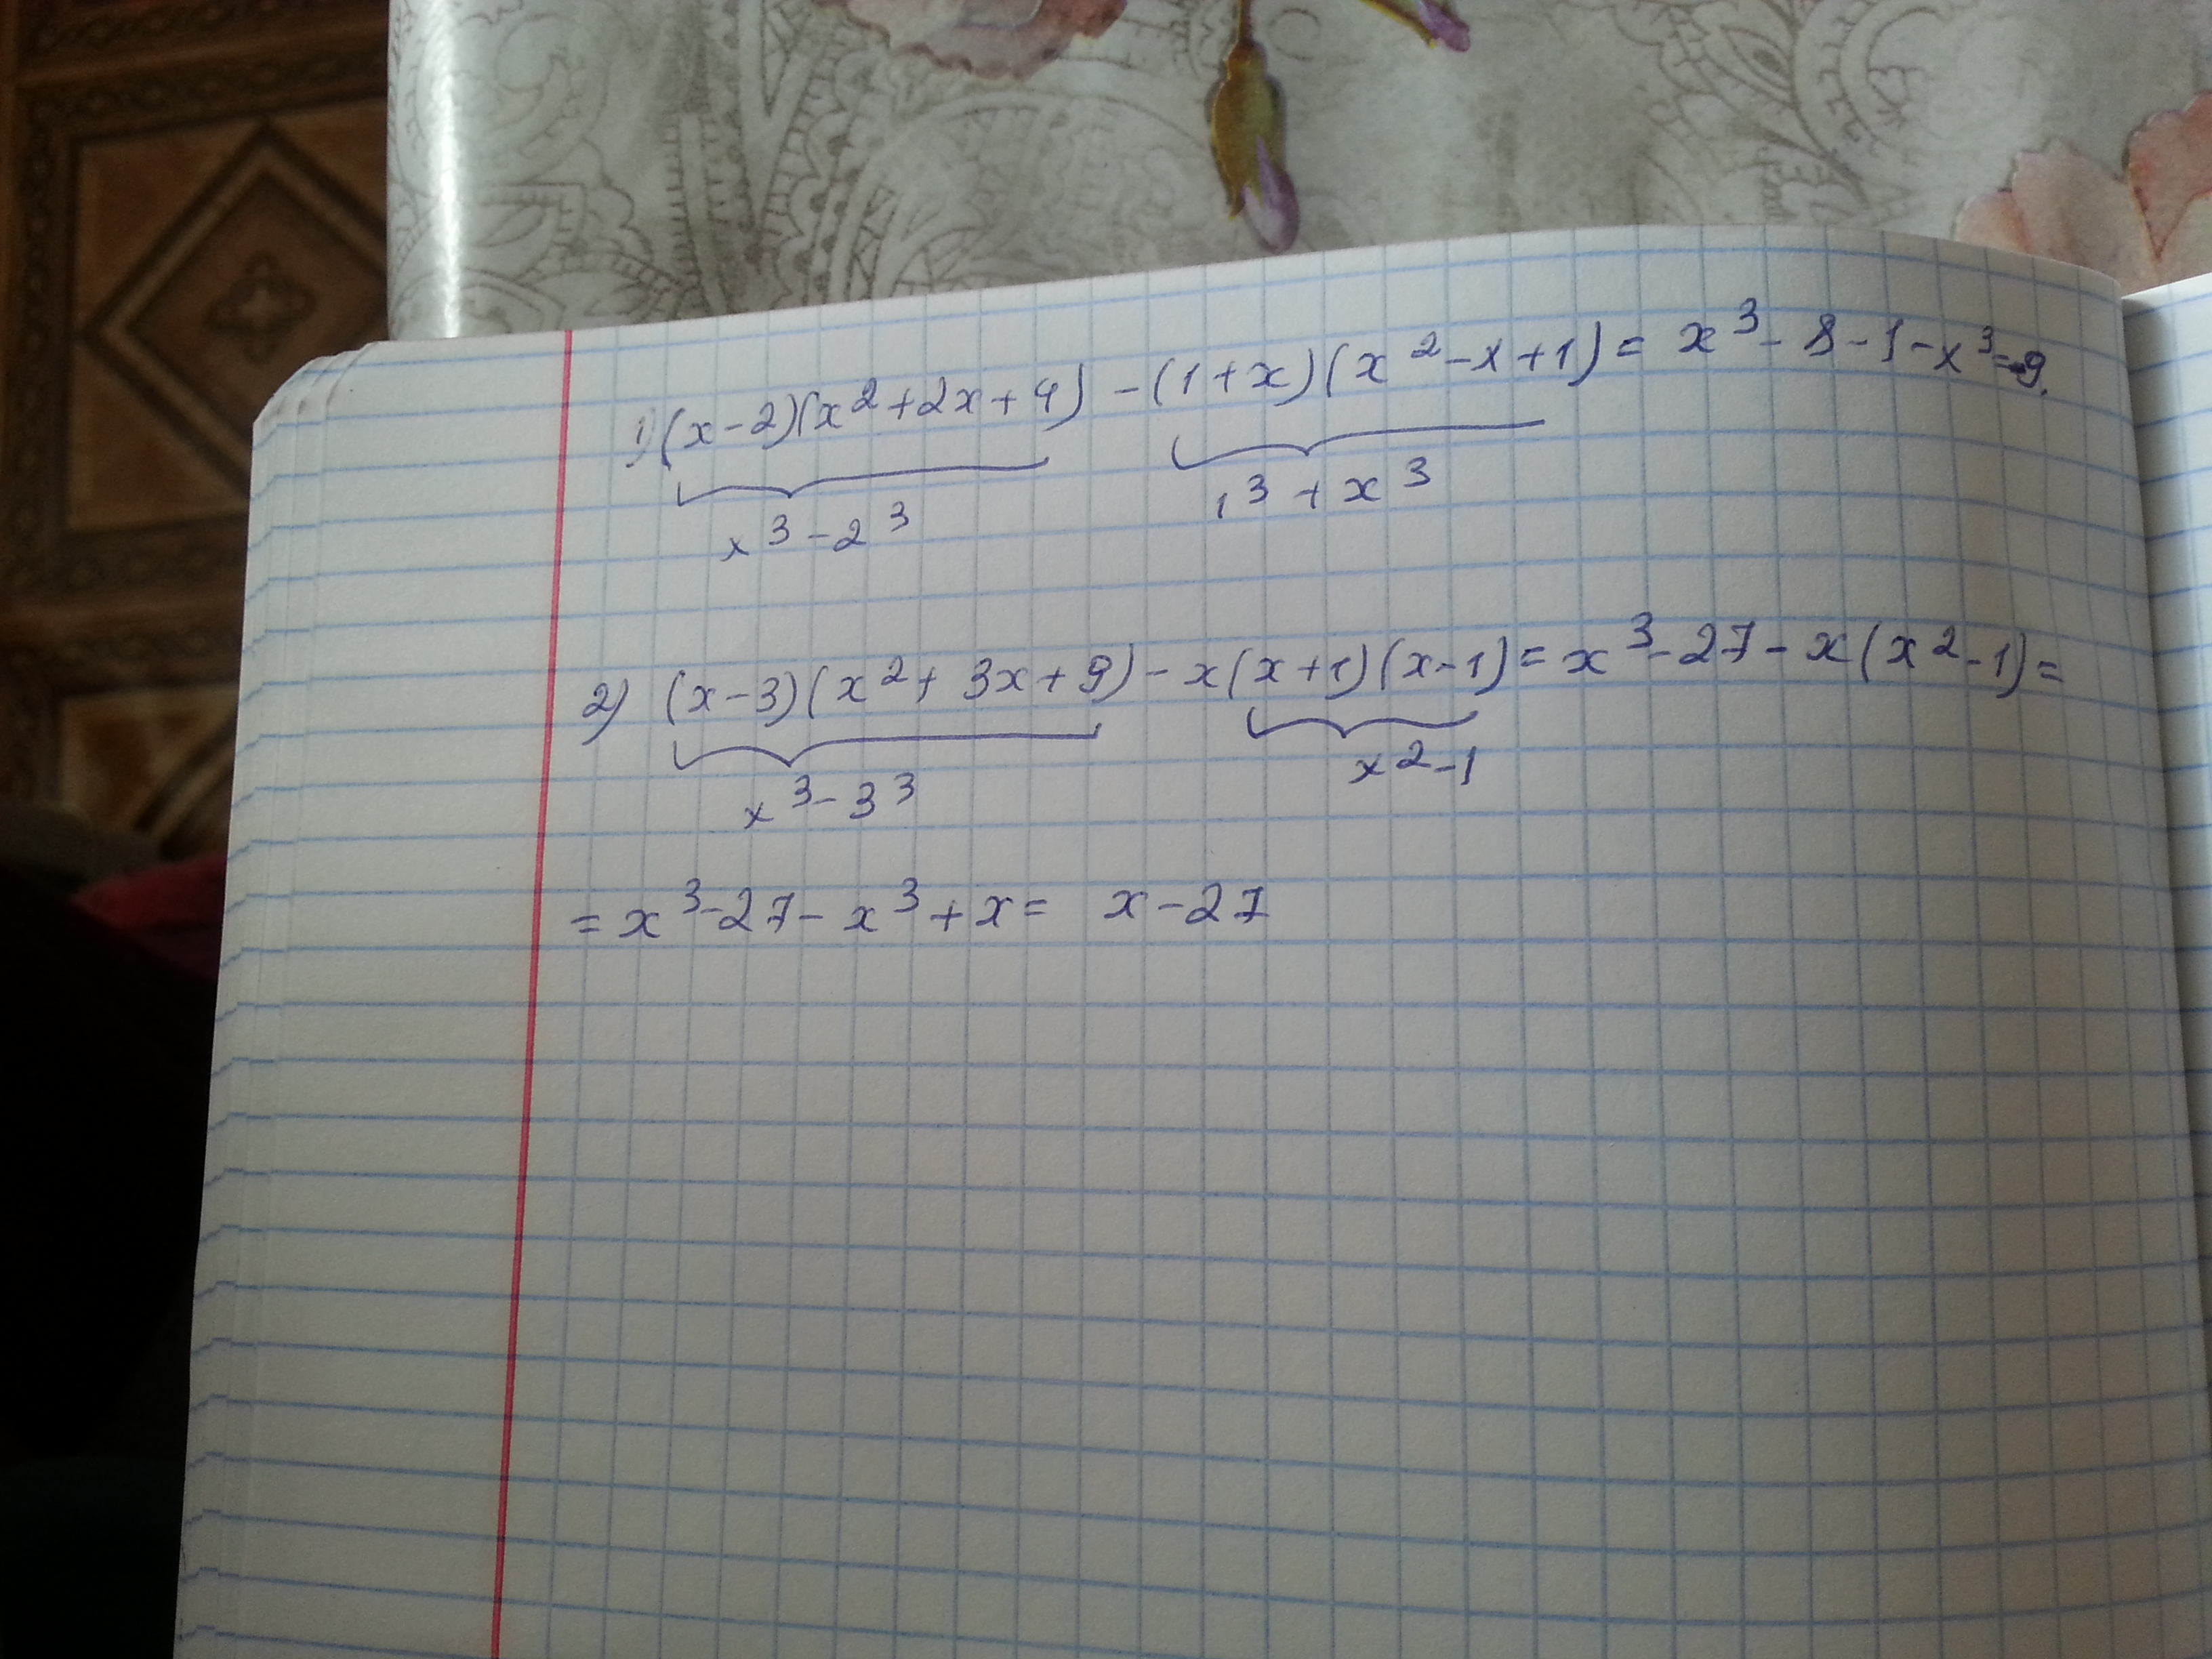 1) (x-2)(x²+2x+4) - (1+x)(x²-x+1) = x³-8-1-x³=-9.
x³-2³ 1³+x³
2) (x-3)(x²+3x+9) - x(x+1)(x-1) = x³-27-x(x²-1)=
x³-3³ x²-1
= x³-27-x³+x= x-27